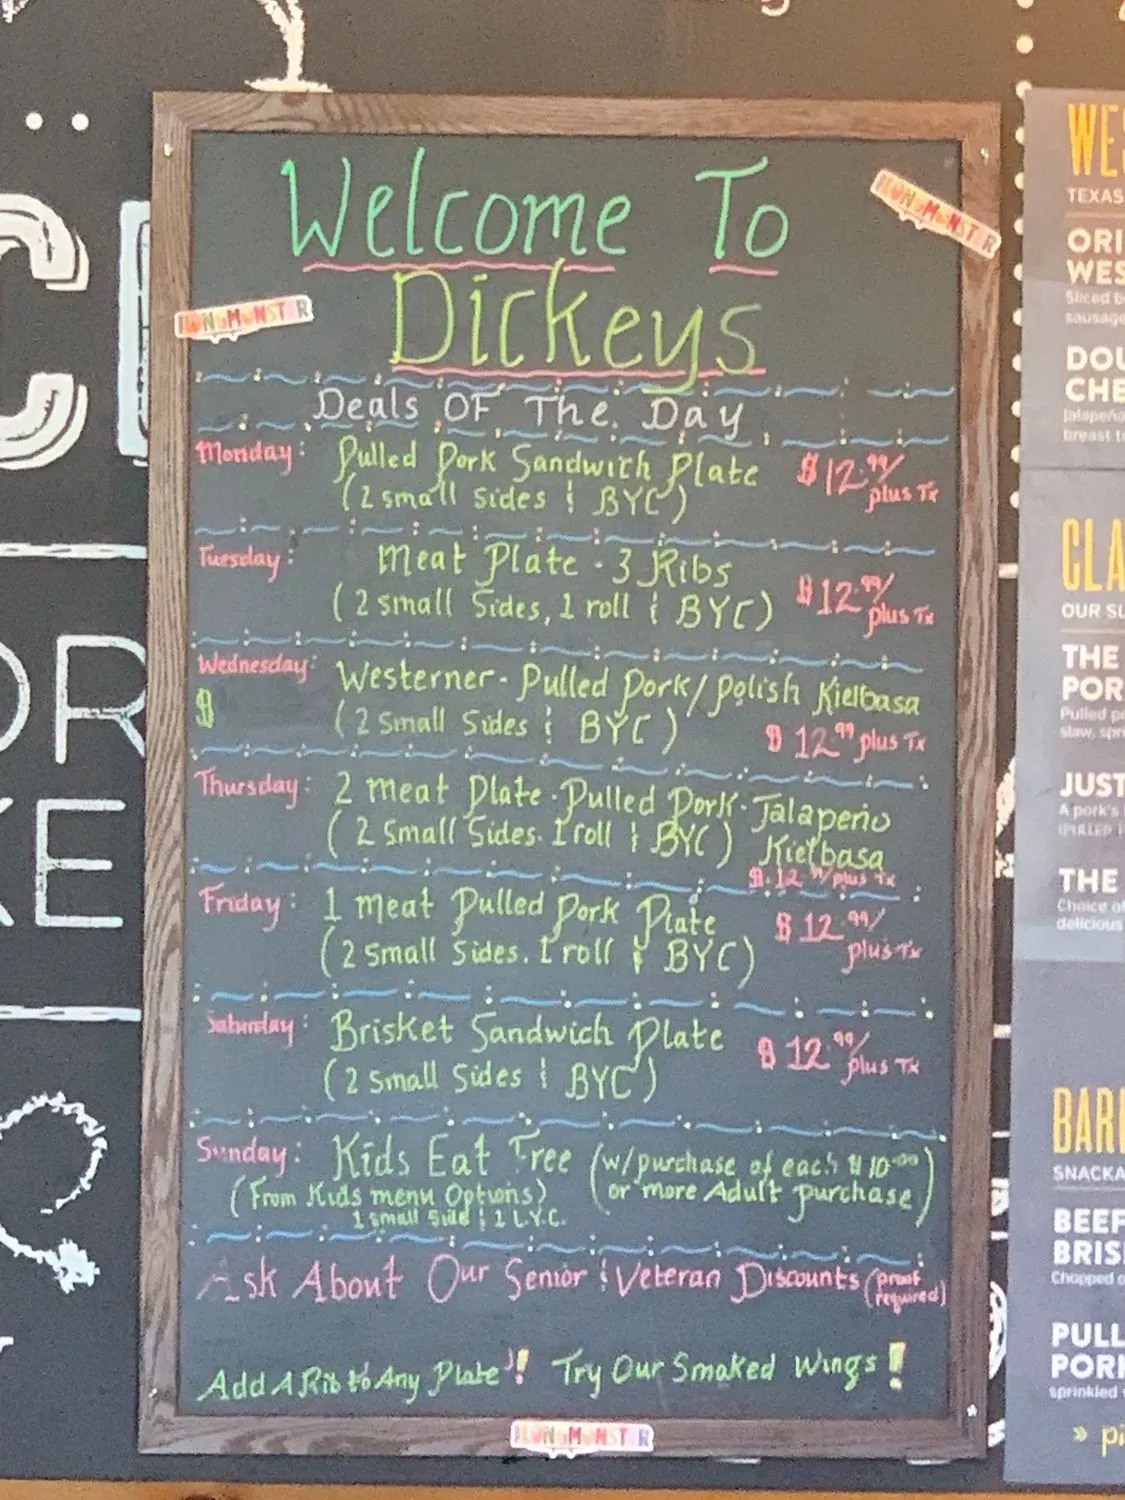 Welcome To
Dickeys
Deals OF The Day
Monday: Pulled Pork Sandwich Plate $12.99/ plus Tx
(2 small sides & BYC)
Tuesday: Meat Plate · 3 Ribs $12.99/ plus Tx
(2 small Sides, 1 roll & BYC)
Wednesday: Westerner - Pulled Pork/Polish Kielbasa
$ (2 Small Sides & BYC) $12.99 plus Tx
Thursday: 2 meat Plate · Pulled Pork · Jalapeño
(2 Small Sides. 1 roll & BYC) Kielbasa
$.12 plus Tx
Friday: 1 meat Pulled Pork Plate $12.99/ plus Tx
(2 Small Sides. 1 roll & BYC)
Saturday: Brisket Sandwich Plate $12.99/ plus Tx
(2 Small Sides & BYC)
Sunday: Kids Eat Free (w/purchase of each $10.00
(From Kids menu Options) or more Adult purchase)
1 small side & 1 L.Y.C.
Ask About Our Senior & Veteran Discounts (proof required)
Add A Rib to Any Plate! Try Our Smoked Wings!
WES
TEXAS
ORI
WES
Sliced b
sausage
DOU
CHE
Jalapeño
breast to
CLA
OUR SU
THE
POR
Pulled p
slaw, spri
JUST
A pork's
THE
Choice of
delicious
BAR
SNACKA
BEEF
BRIS
Chopped o
PULL
PORK
sprinkled
» pi
OR
KE